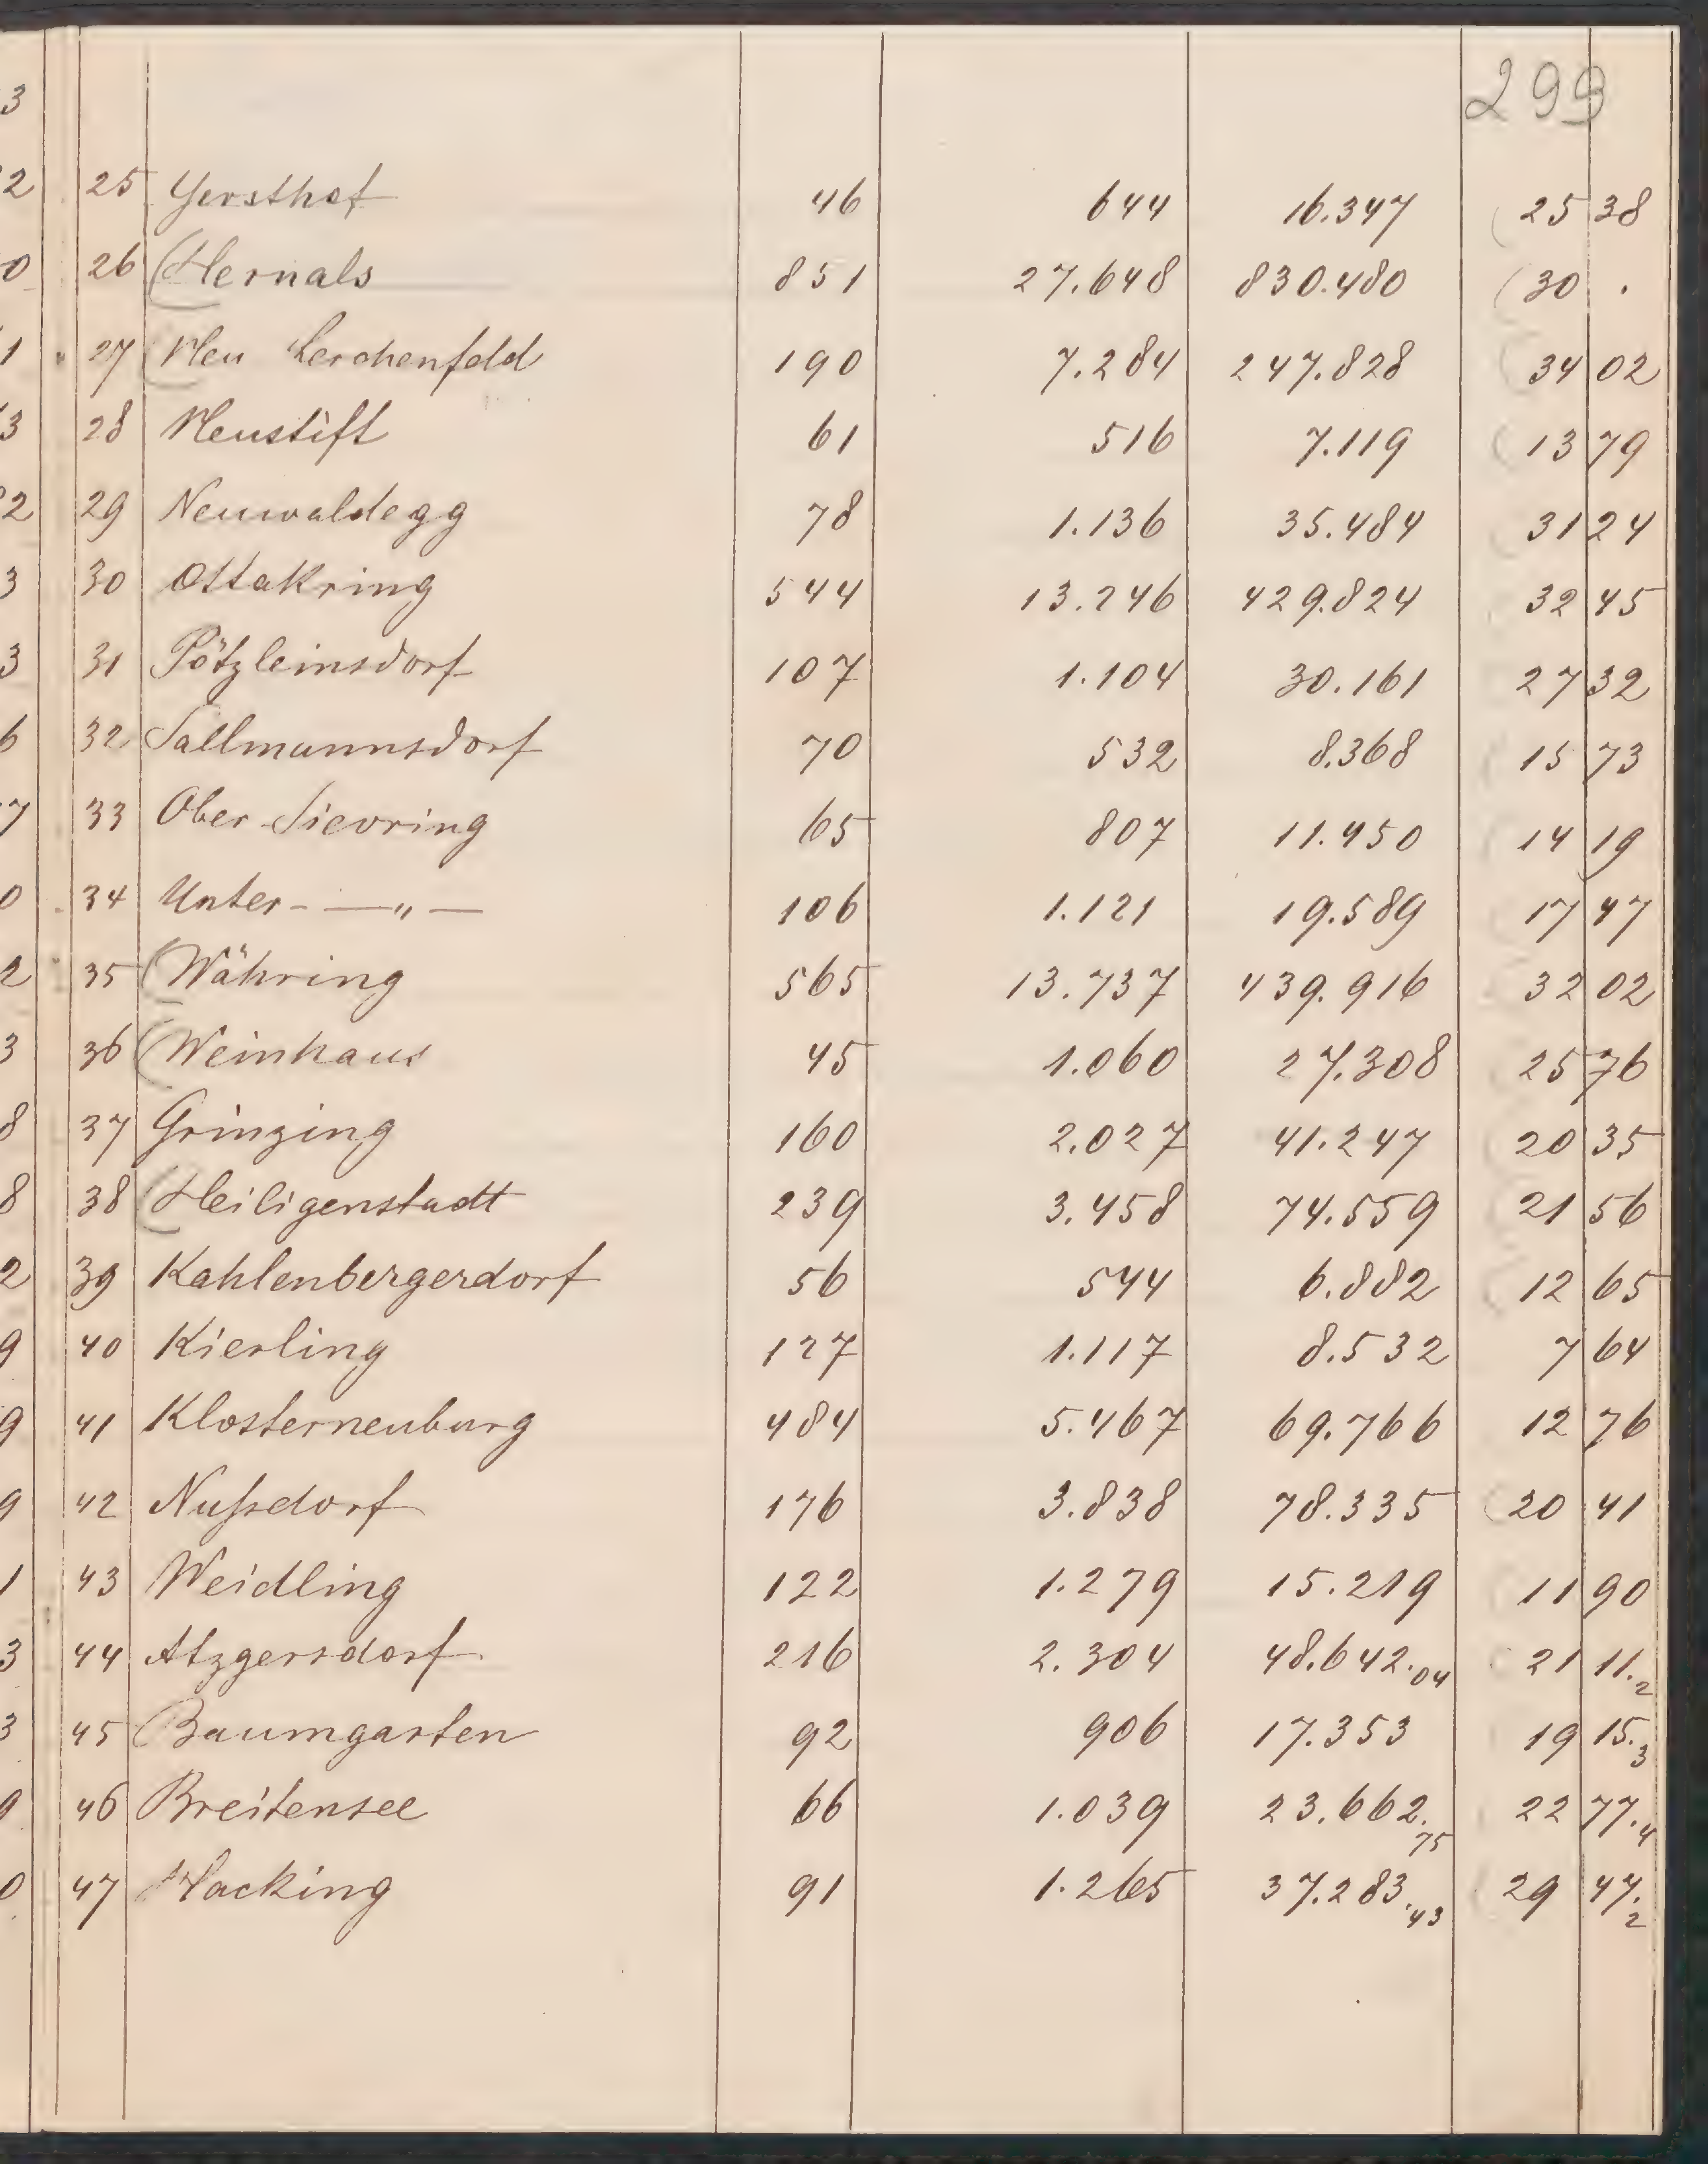 299
25 Gersthof 46 644 16.347 25 38
26 Hernals 851 27.648 830.480 30 .
27 Neu Lerchenfeld 190 7.284 247.828 34 02
28 Neustift 61 516 7.119 13 79
29 Neuwaldegg 78 1.136 35.484 31 24
30 Ottakring 544 13.246 429.824 32 45
31 Pötzleinsdorf 107 1.104 30.161 27 32
32 Sallmannsdorf 70 532 8.368 15 73
33 Ober-Sievring 65 807 11.450 14 19
34 Unter- — „ — 106 1.121 19.589 17 47
35 Währing 565 13.737 439.916 32 02
36 Weinhaus 45 1.060 27.308 25 76
37 Grinzing 160 2.027 41.247 20 35
38 Heiligenstadt 239 3.458 74.559 21 56
39 Kahlenbergerdorf 56 544 6.882 12 65
40 Kierling 127 1.117 8.532 7 64
41 Klosterneuburg 484 5.467 69.766 12 76
42 Nußdorf 176 3.838 78.335 20 41
43 Weidling 122 1.279 15.219 11 90
44 Atzgersdorf 216 2.304 48.642.04 21 11.2
45 Baumgarten 92 906 17.353 19 15.3
46 Breitensee 66 1.039 23.662.75 22 77.4
47 Hacking 91 1.265 37.283.43 29 47.2